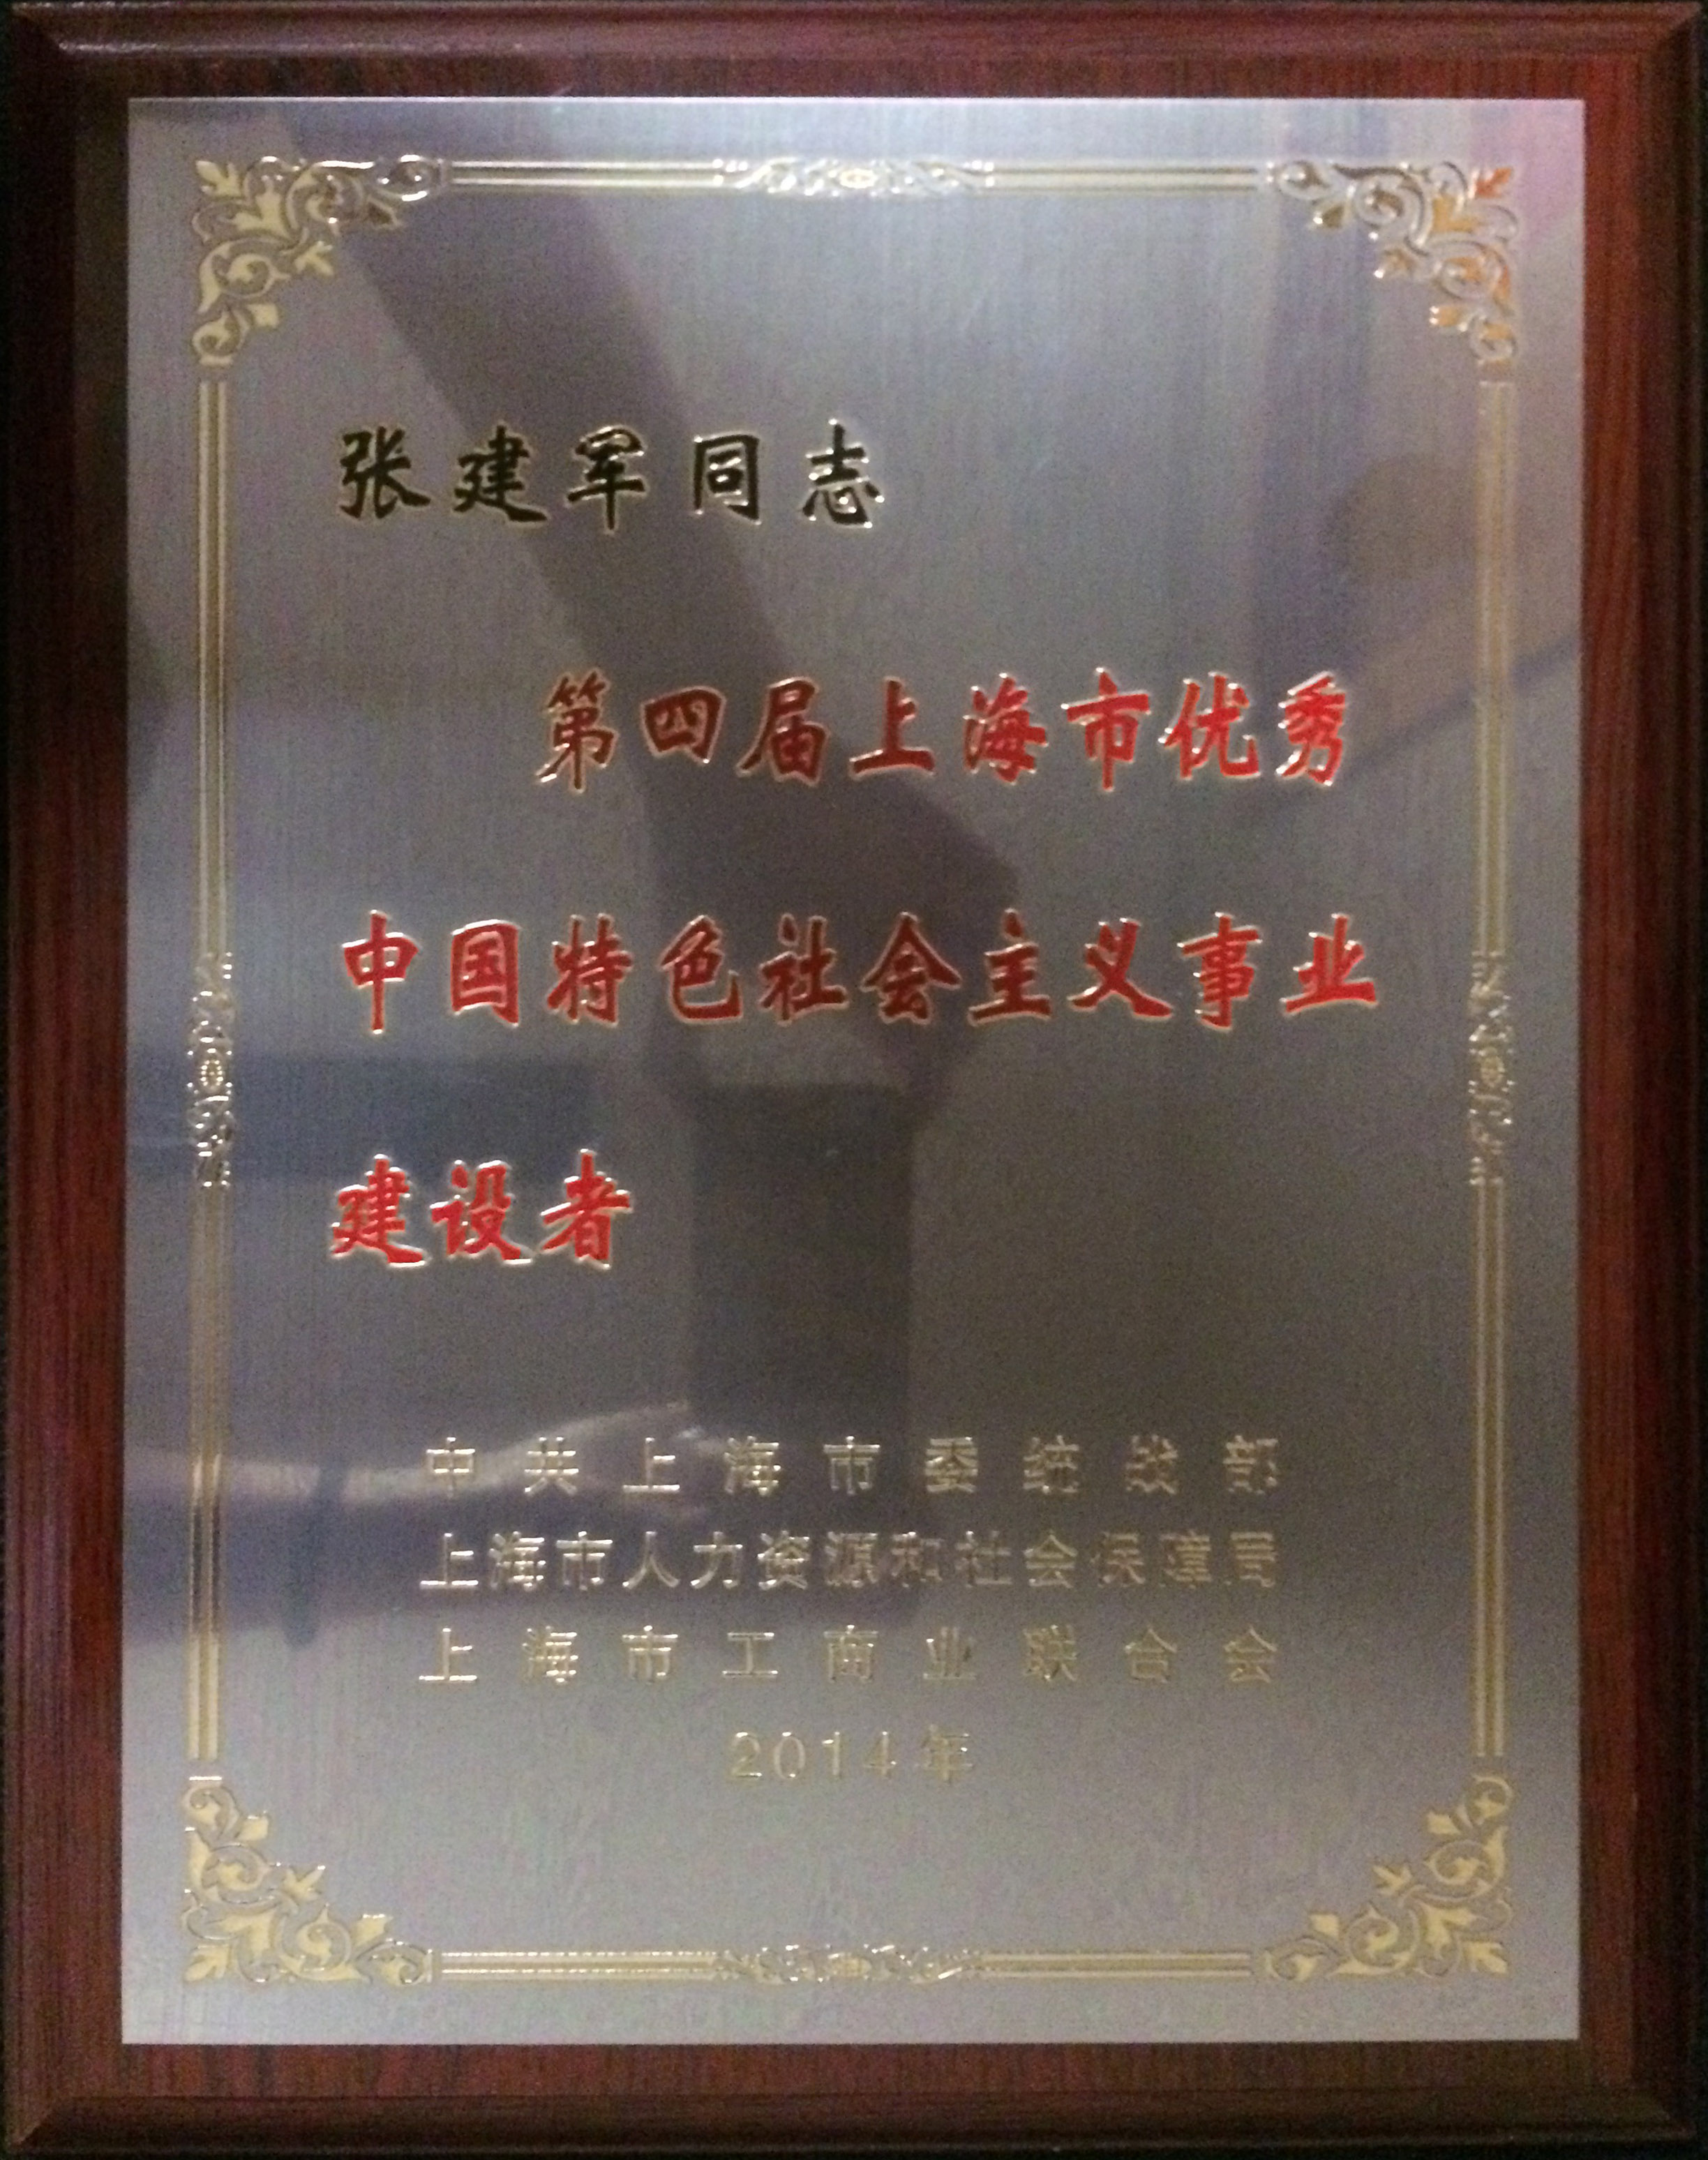 张建军同志
第四届上海市优秀
中国特色社会主义事业
建设者
中共上海市委统战部
上海市人力资源和社会保障局
上海市工商业联合会
2014年